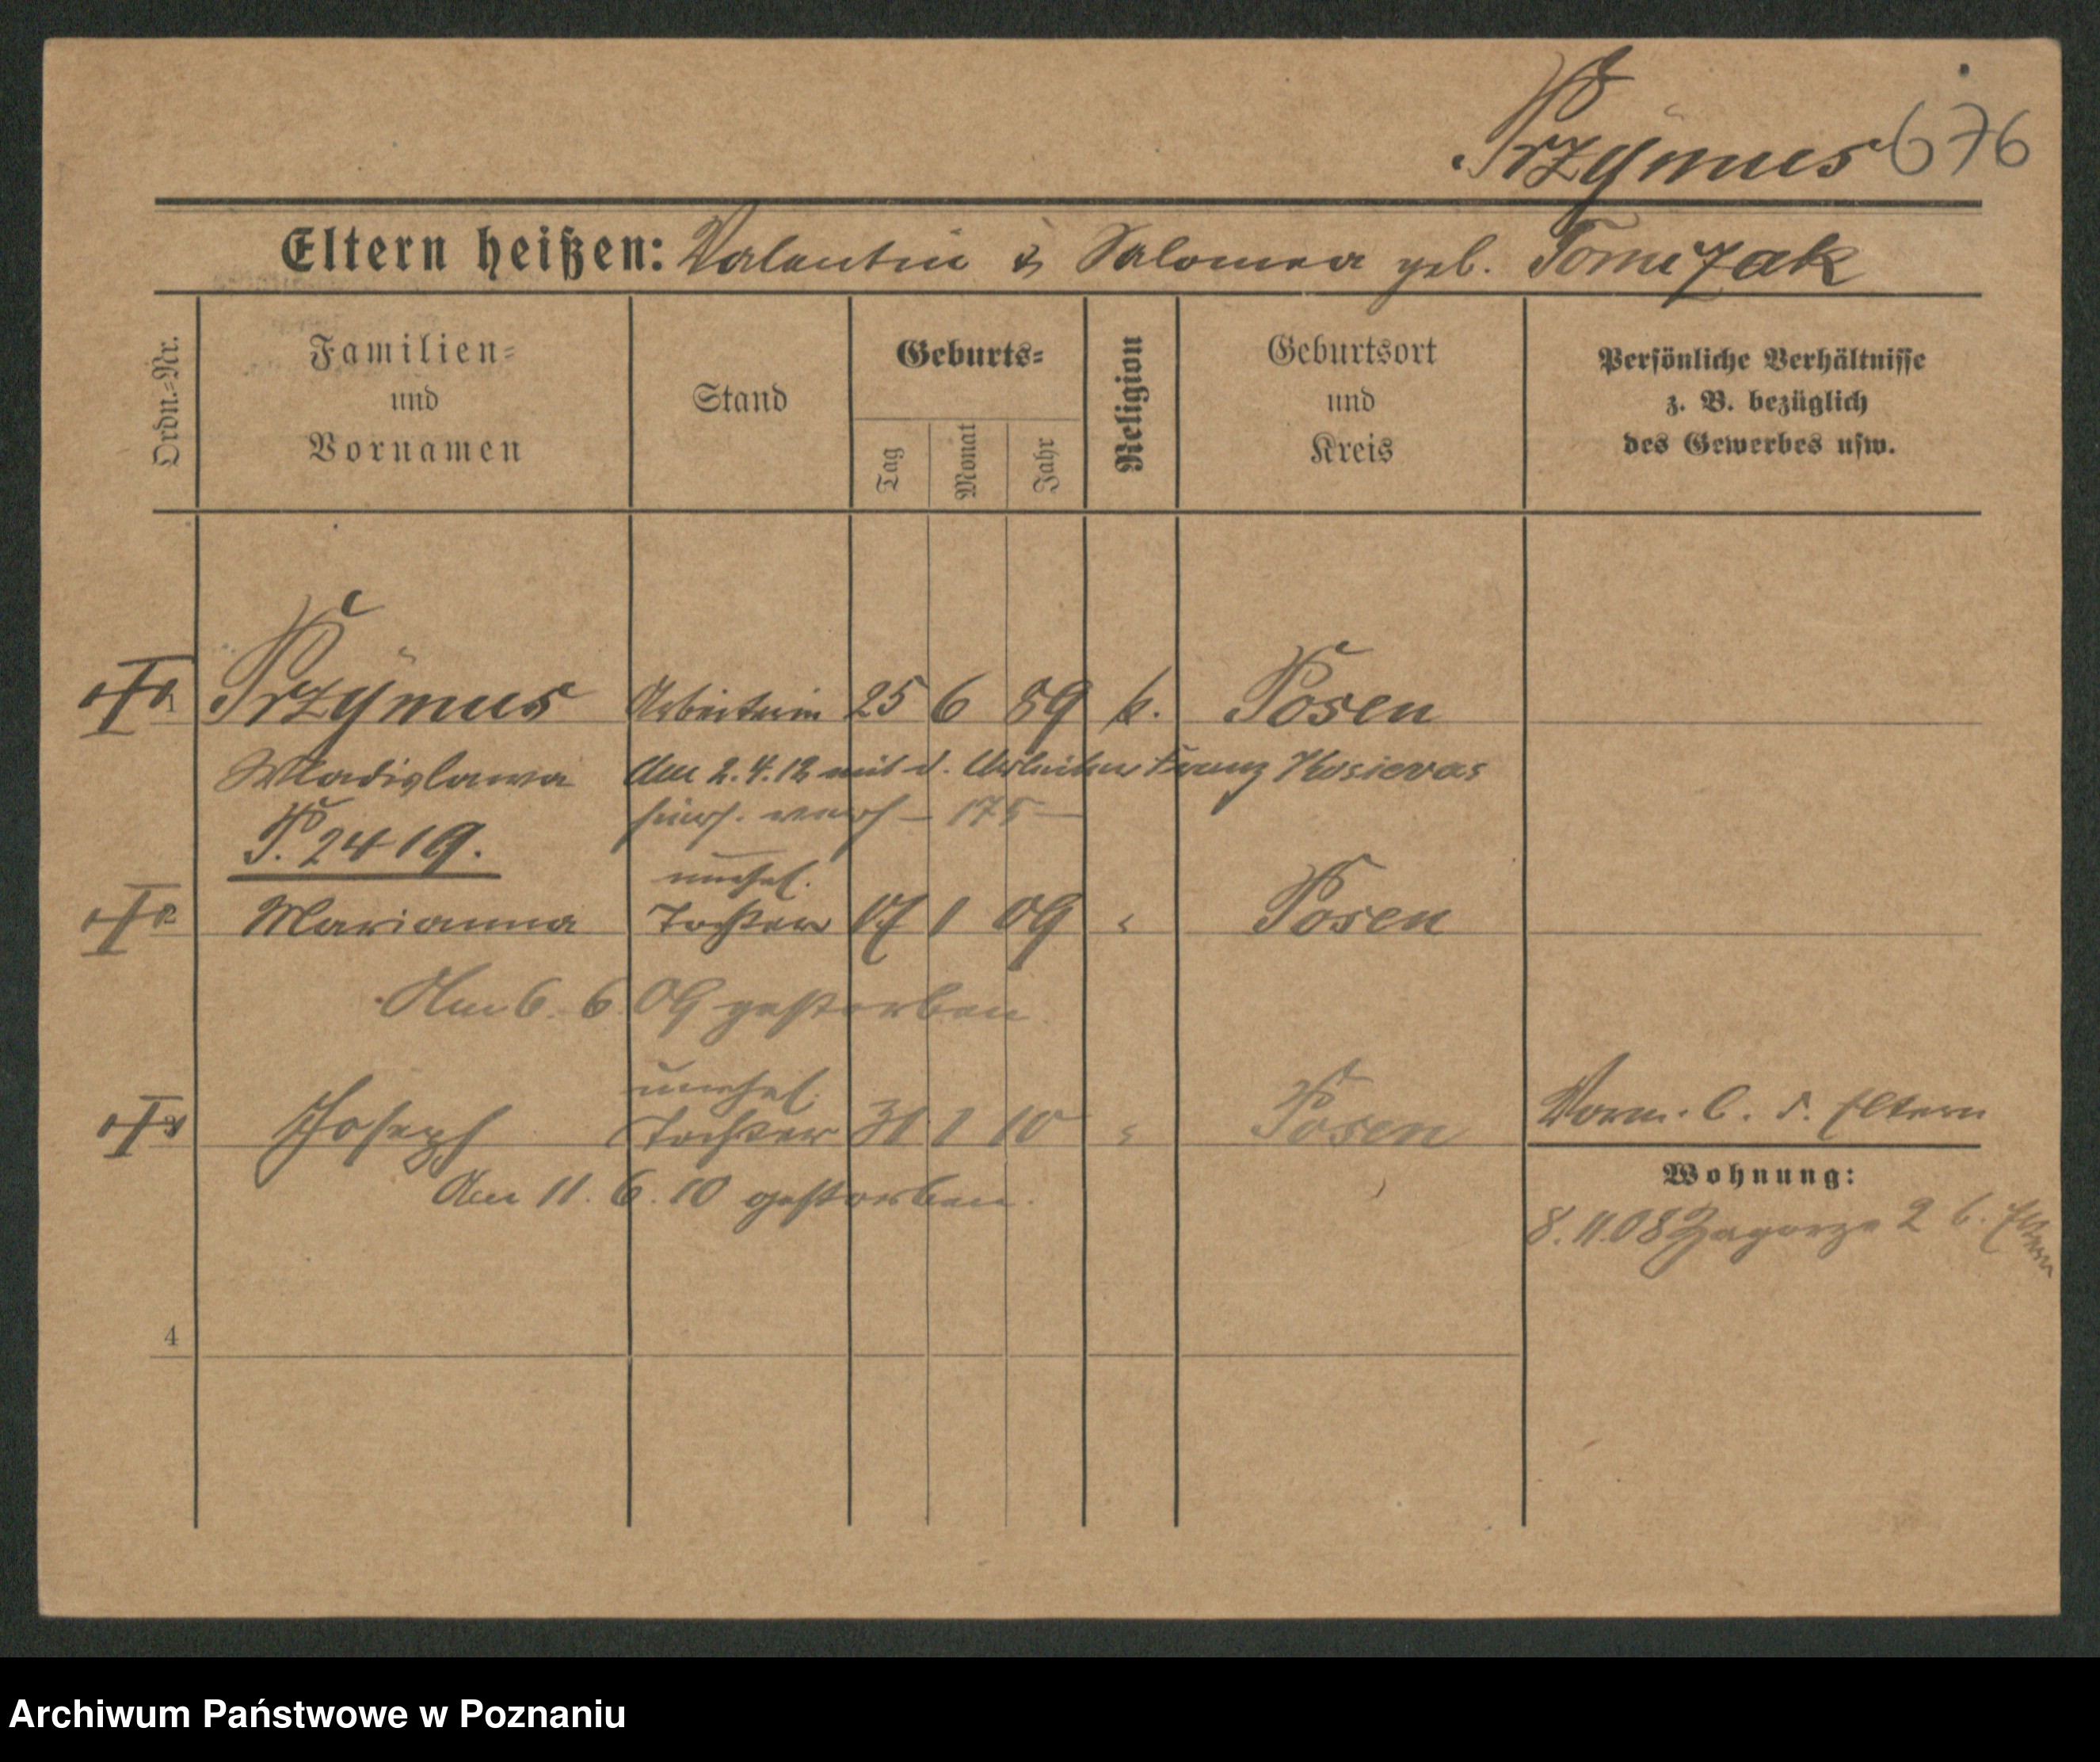 Przÿmus 676
Eltern heißen: Valentin & Salomea geb. Tomczak
Ordn.=Nr.
Familien=
und
Vornamen
Stand
Geburts=
Tag
Monat
Jahr
Religion
Geburtsort
und
Kreis
Persönliche Verhältnisse
z. B. bezüglich
des Gewerbes usw.
Przÿmus Arbeiterin 25 6 89 k. Posen
Wladislawa Am 2.4.12 mit d. Arbeiter Franz
P. 2419. 175
unehel.
Marianna Tochter 17 1 09 " Posen
Am 6. 6. 09 gestorben
unehel.
Joseph Tochter 31 1 10 " Posen
Am 11. 6. 10 gestorben.
Vorm. b. d. Eltern
Wohnung:
8.11.08 Zagorze 2 b. Eltern
4
Archiwum Państwowe w Poznaniu